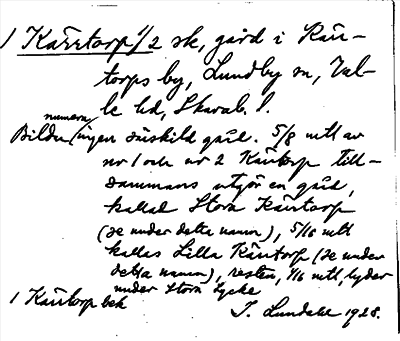 1 Kärrtorp 1/2 sk, gård i Kärr-
torps by, Lundby sn, Val-
le hd, Skarab. l.
Bildar numera ingen särskild gård. 5/8 mtl av
nr 1 och nr 2 Kärrtorp till-
sammans utgör en gård,
kallad Stora Kärrtorp
(se under detta namn), 5/16 mtl
kallas Lilla Kärrtorp (se under
detta namn), resten, 1/16 mtl, lyder
under Stora Lycke
1 Kärrtorp bek
I. Lundahl 1928.